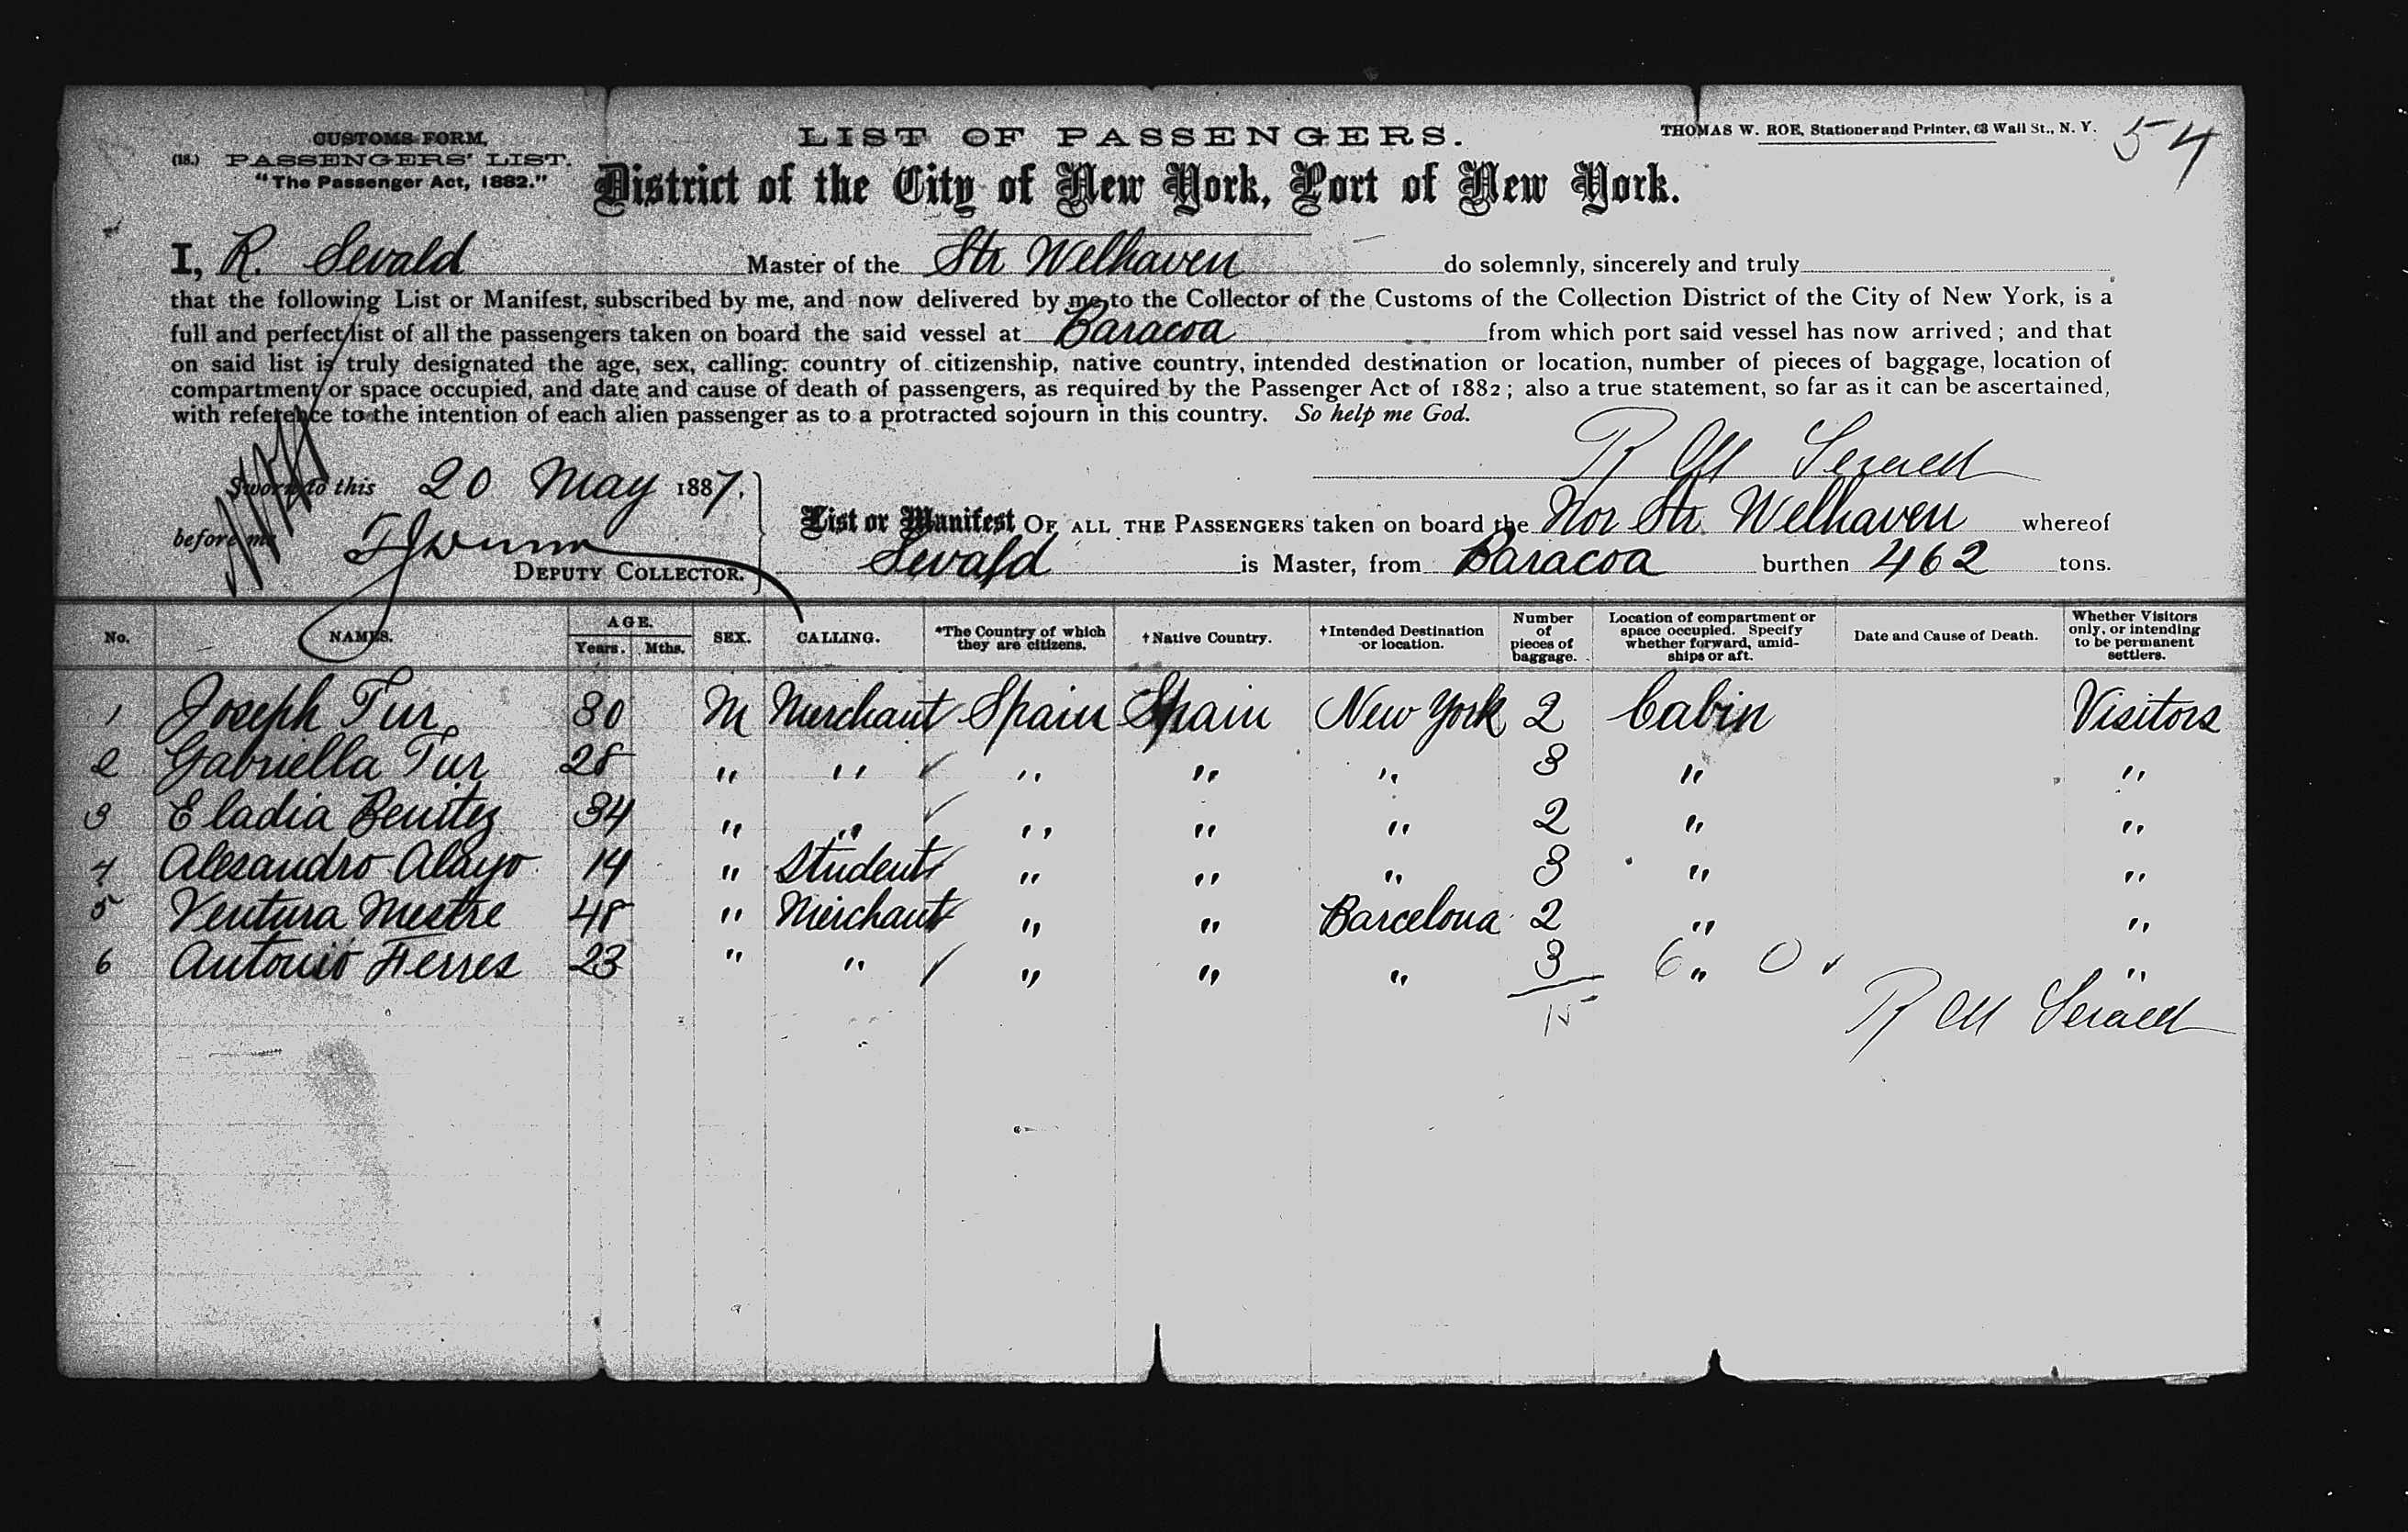 CUSTOMS FORM,
(18.) PASSENGERS' LIST.
"The Passenger Act, 1882."
LIST OF PASSENGERS.
THOMAS W. ROE, Stationer and Printer, 63 Wall St., N. Y.
54
District of the City of New York, Port of New York.
I, R. Sevald Master of the Str Welhaven do solemnly, sincerely and truly
that the following List or Manifest, subscribed by me, and now delivered by me to the Collector of the Customs of the Collection District of the City of New York, is a
full and perfect list of all the passengers taken on board the said vessel at Baracoa from which port said vessel has now arrived; and that
on said list is truly designated the age, sex, calling, country of citizenship, native country, intended destination or location, number of pieces of baggage, location of
compartment or space occupied, and date and cause of death of passengers, as required by the Passenger Act of 1882; also a true statement, so far as it can be ascertained,
with reference to the intention of each alien passenger as to a protracted sojourn in this country. So help me God.
Sworn to this 20 May 1887,
before me
DEPUTY COLLECTOR.
List or Manifest OF ALL THE PASSENGERS taken on board the Nor Str. Welhaven whereof
Sevald is Master, from Baracoa burthen 462 tons.
No. NAMES. AGE. Years. Mths. SEX. CALLING. *The Country of which they are citizens. †Native Country. †Intended Destination or location. Number of pieces of baggage. Location of compartment or space occupied. Specify whether forward, amidships or aft. Date and Cause of Death. Whether Visitors only, or intending to be permanent settlers.
1 Joseph Tur 30 M Merchant Spain Spain New York 2 Cabin Visitors
2 Gabriella Tur 28 " " " " " 3 " "
3 Eladia Benitez 34 " " " " " 2 " "
4 Alesandro Alayo 14 " Student " " " 3 " "
5 Ventura Mestre 48 " Merchant " " Barcelona 2 " "
6 Antonio Ferres 23 " " " " " 3 " "
6 0
15